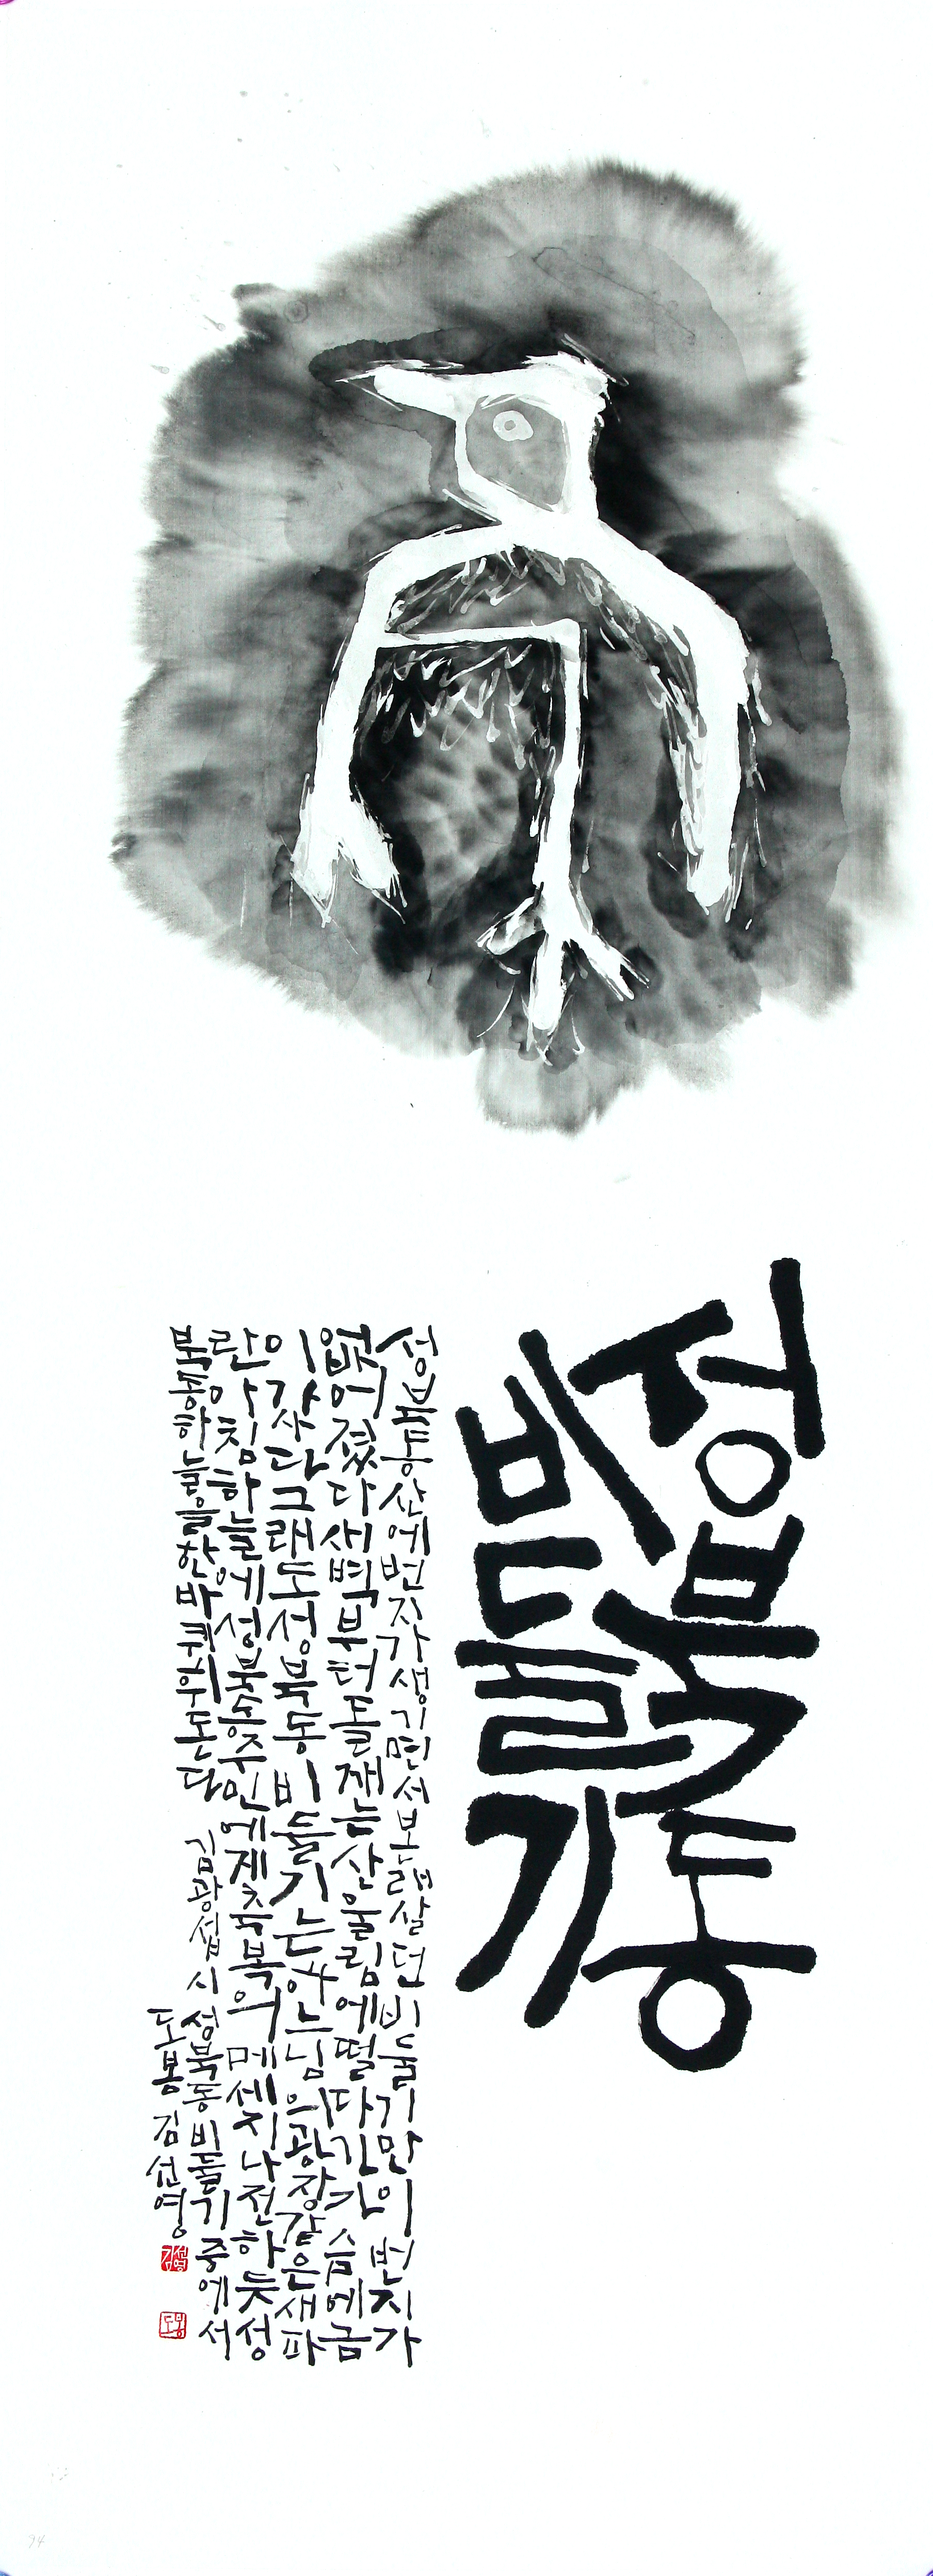 성북동
비둘기
성북동산에번지가생기면서본래살던비둘기만이번지가
없어졌다새벽부터돌깨는산울림에떨다가가슴에금
이갔다그래도성북동비둘기는하느님의광장같은새파
란아침하늘에성북동주민에게축복의메세지나전하듯성
북동하늘을한바퀴휘돈다 김광섭시 성북동비둘기중에서
도봉 김선영
김선영
도봉
94